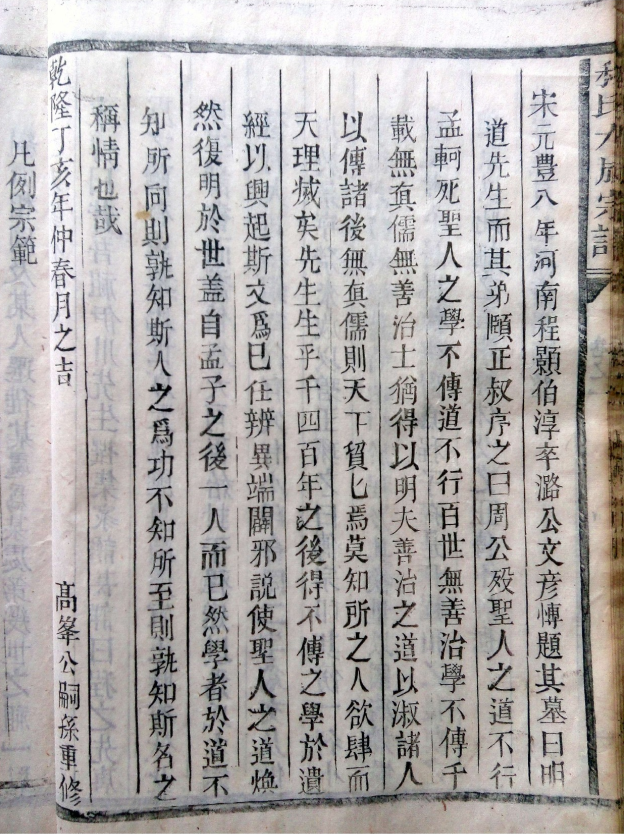 程氏大成宗譜
宋元豊八年河南程顥伯淳卒潞公文彦愽題其墓曰明
道先生而其弟頤正叔序之曰周公殁聖人之道不行
孟軻死聖人之學不傳道不行百世無善治學不傳千
載無真儒無善治士猶得以明夫善治之道以淑諸人
以傳諸後無真儒則天下貿貿焉莫知所之人欲肆而
天理㓕矣先生生乎千四百年之後得不傳之學於遺
經以興起斯文爲巳任辨異端闢邪説使聖人之道煥
然復明於世盖自孟子之後一人而巳然學者於道不
知所向則孰知斯人之爲功不知所至則孰知斯名之
稱情也哉
乾隆丁亥年仲春月之吉
高峯公嗣孫重修
凡例宗範